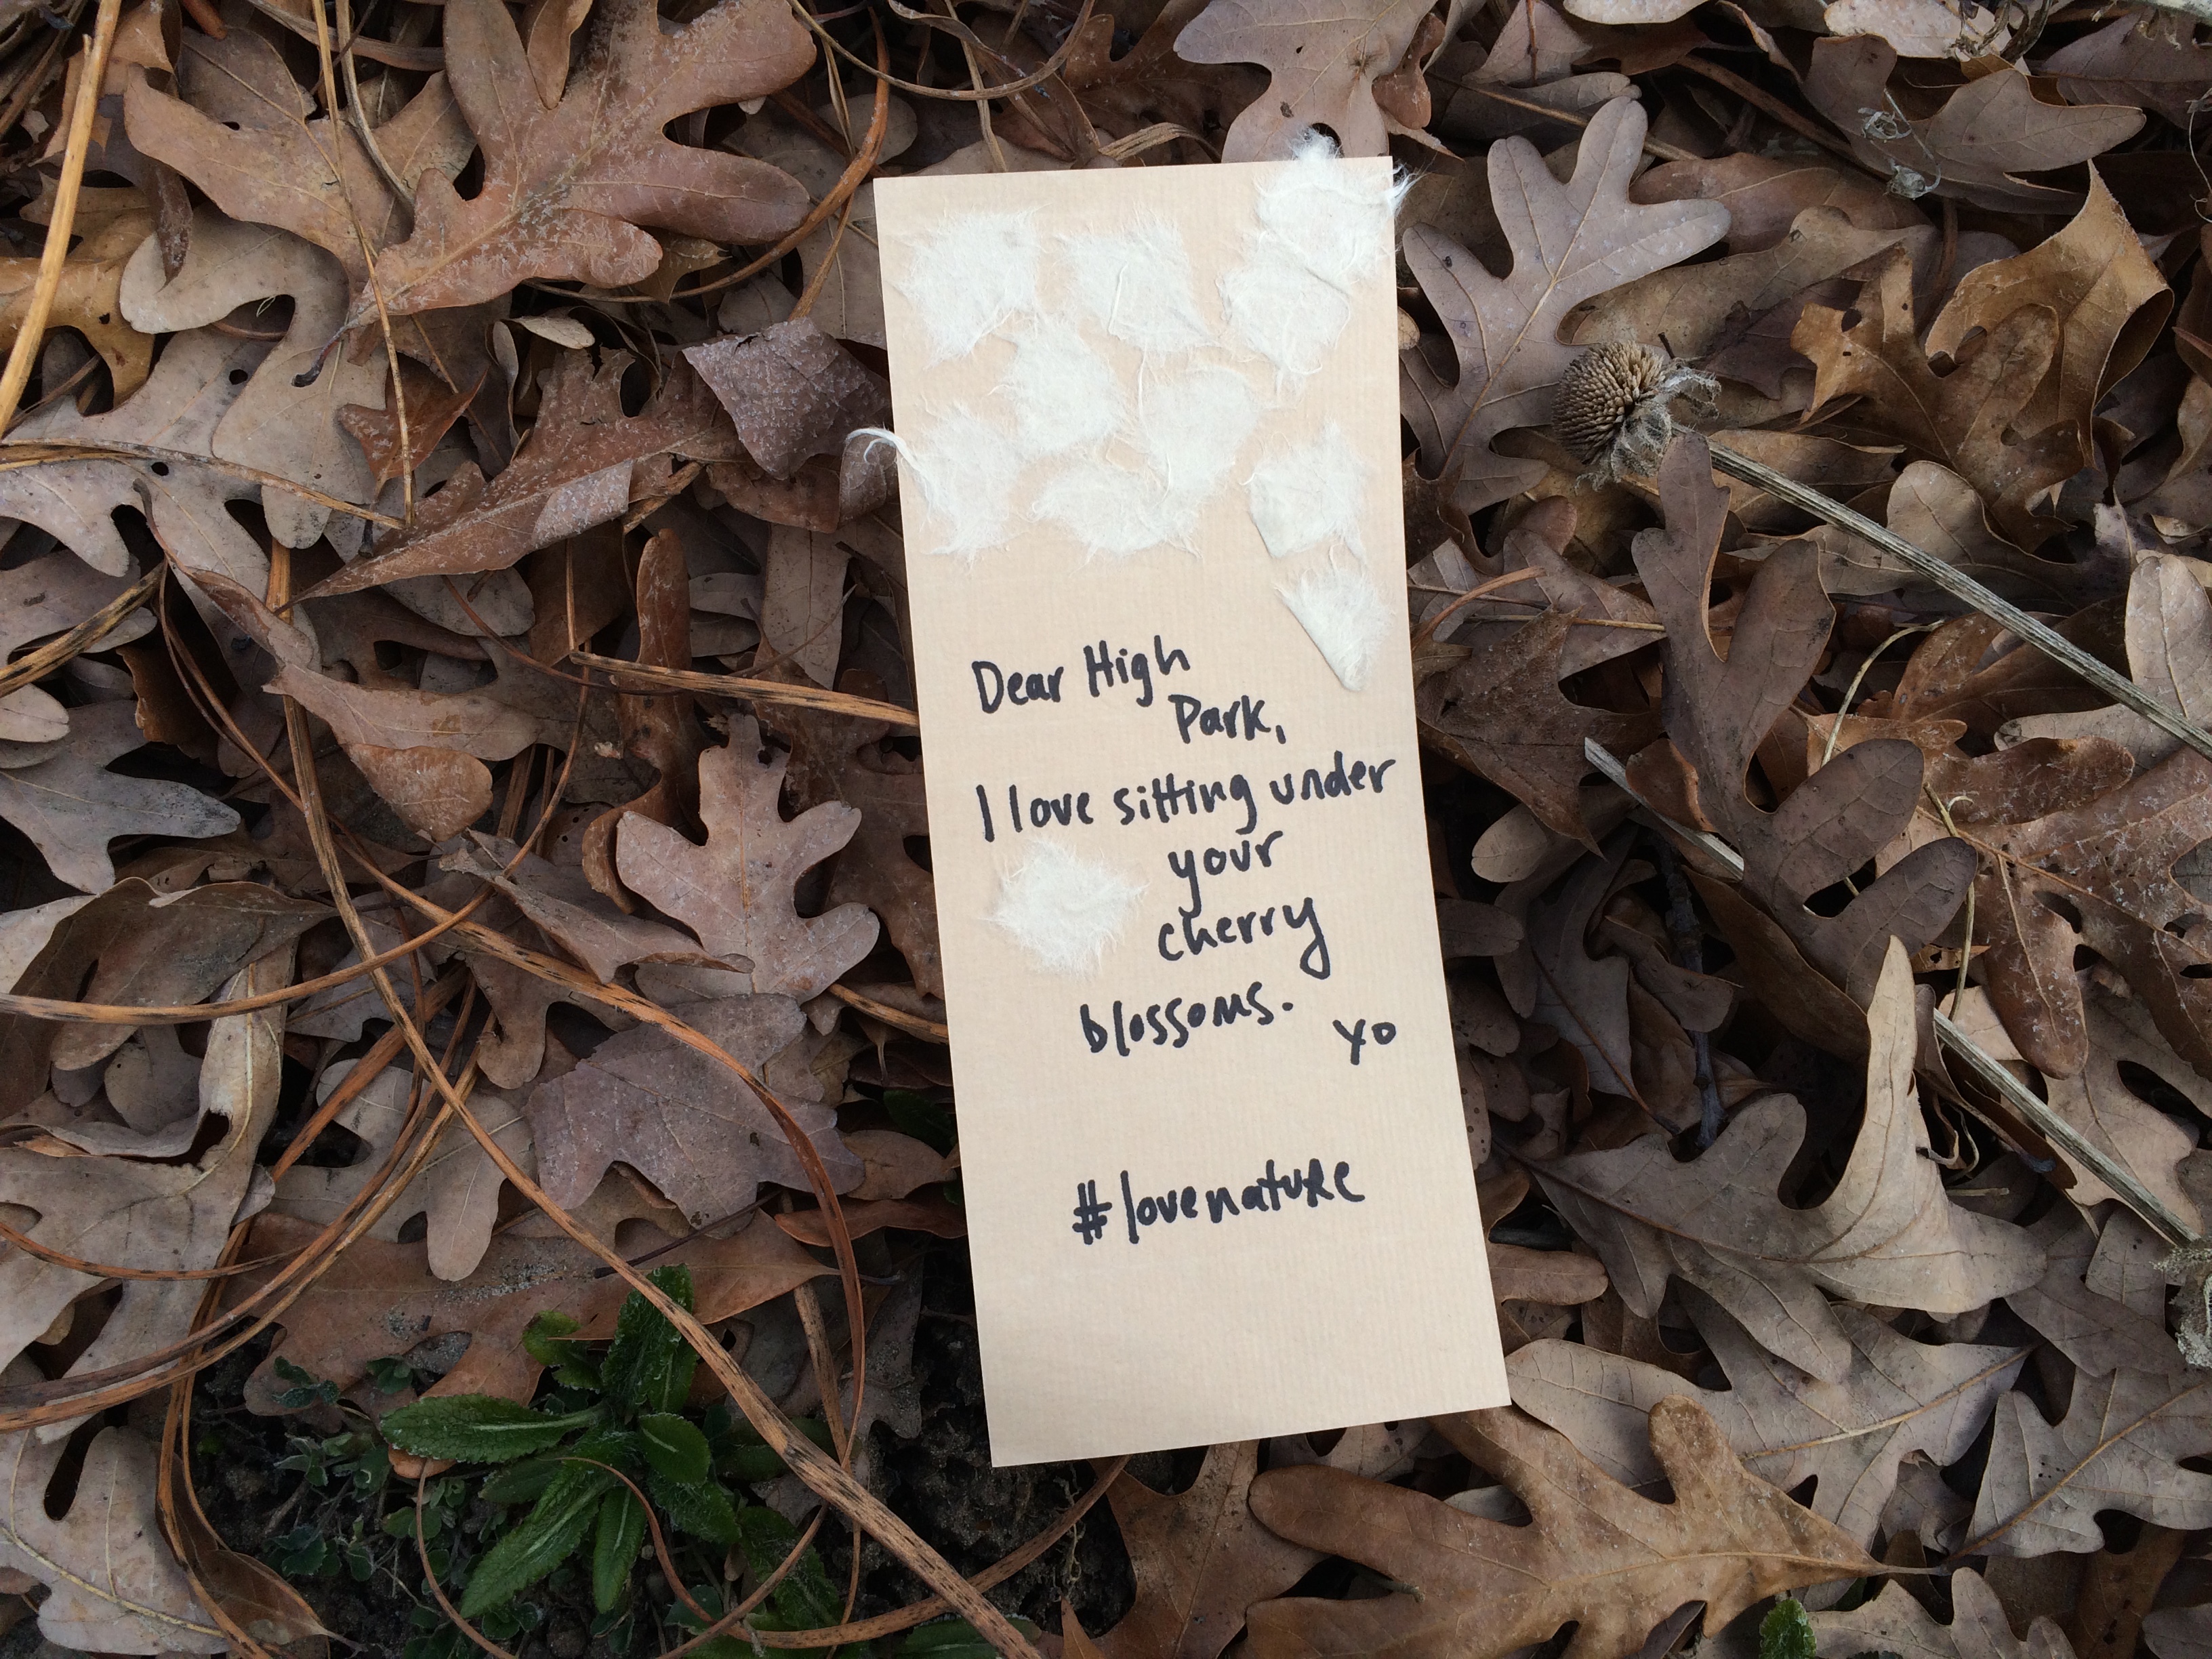 Dear High
Park,
I love sitting under
your
cherry
blossoms.
xo
#lovenature